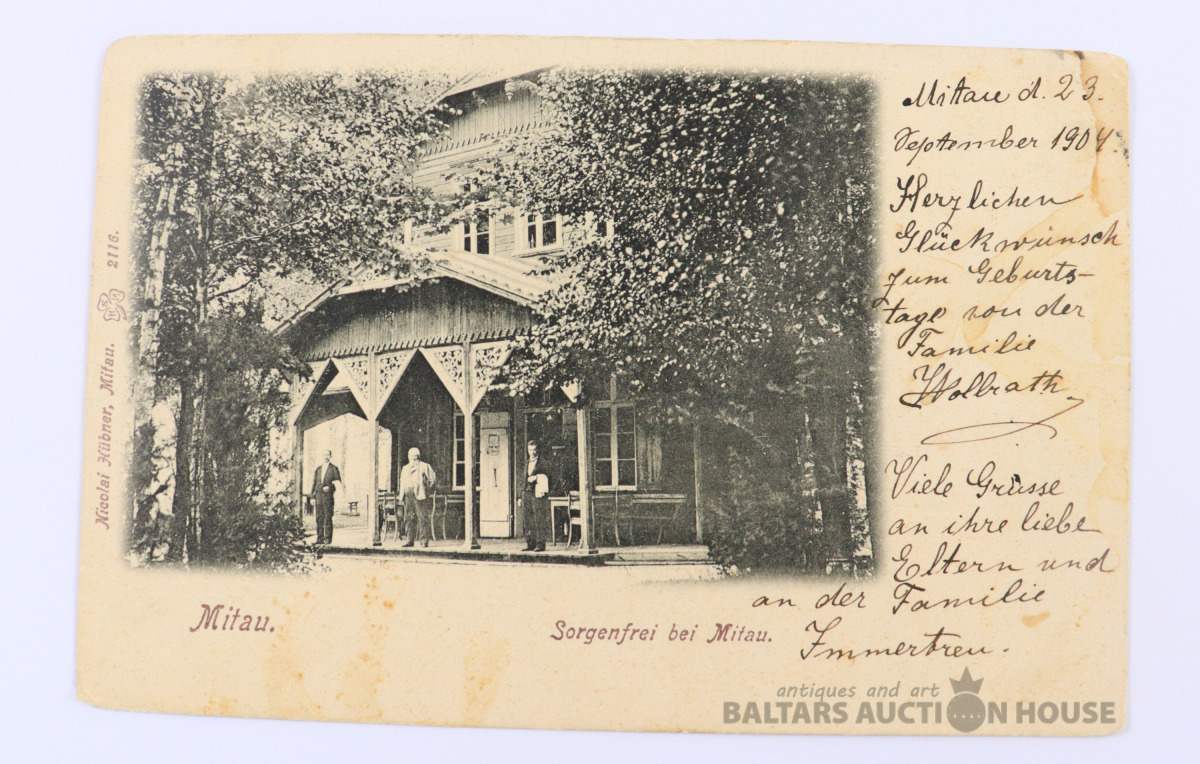 Mitau d. 23.
September 1904.
Herzlichen
Glückwünsch
zum Geburts-
tage von der
Familie
Wollrath
Viele Grüsse
an ihre liebe
Eltern und
an der Familie
Immertreu.
Nicolai Hübner, Mitau. 2116.
Mitau.
Sorgenfrei bei Mitau.
antiques and art
BALTARS AUCTION HOUSE